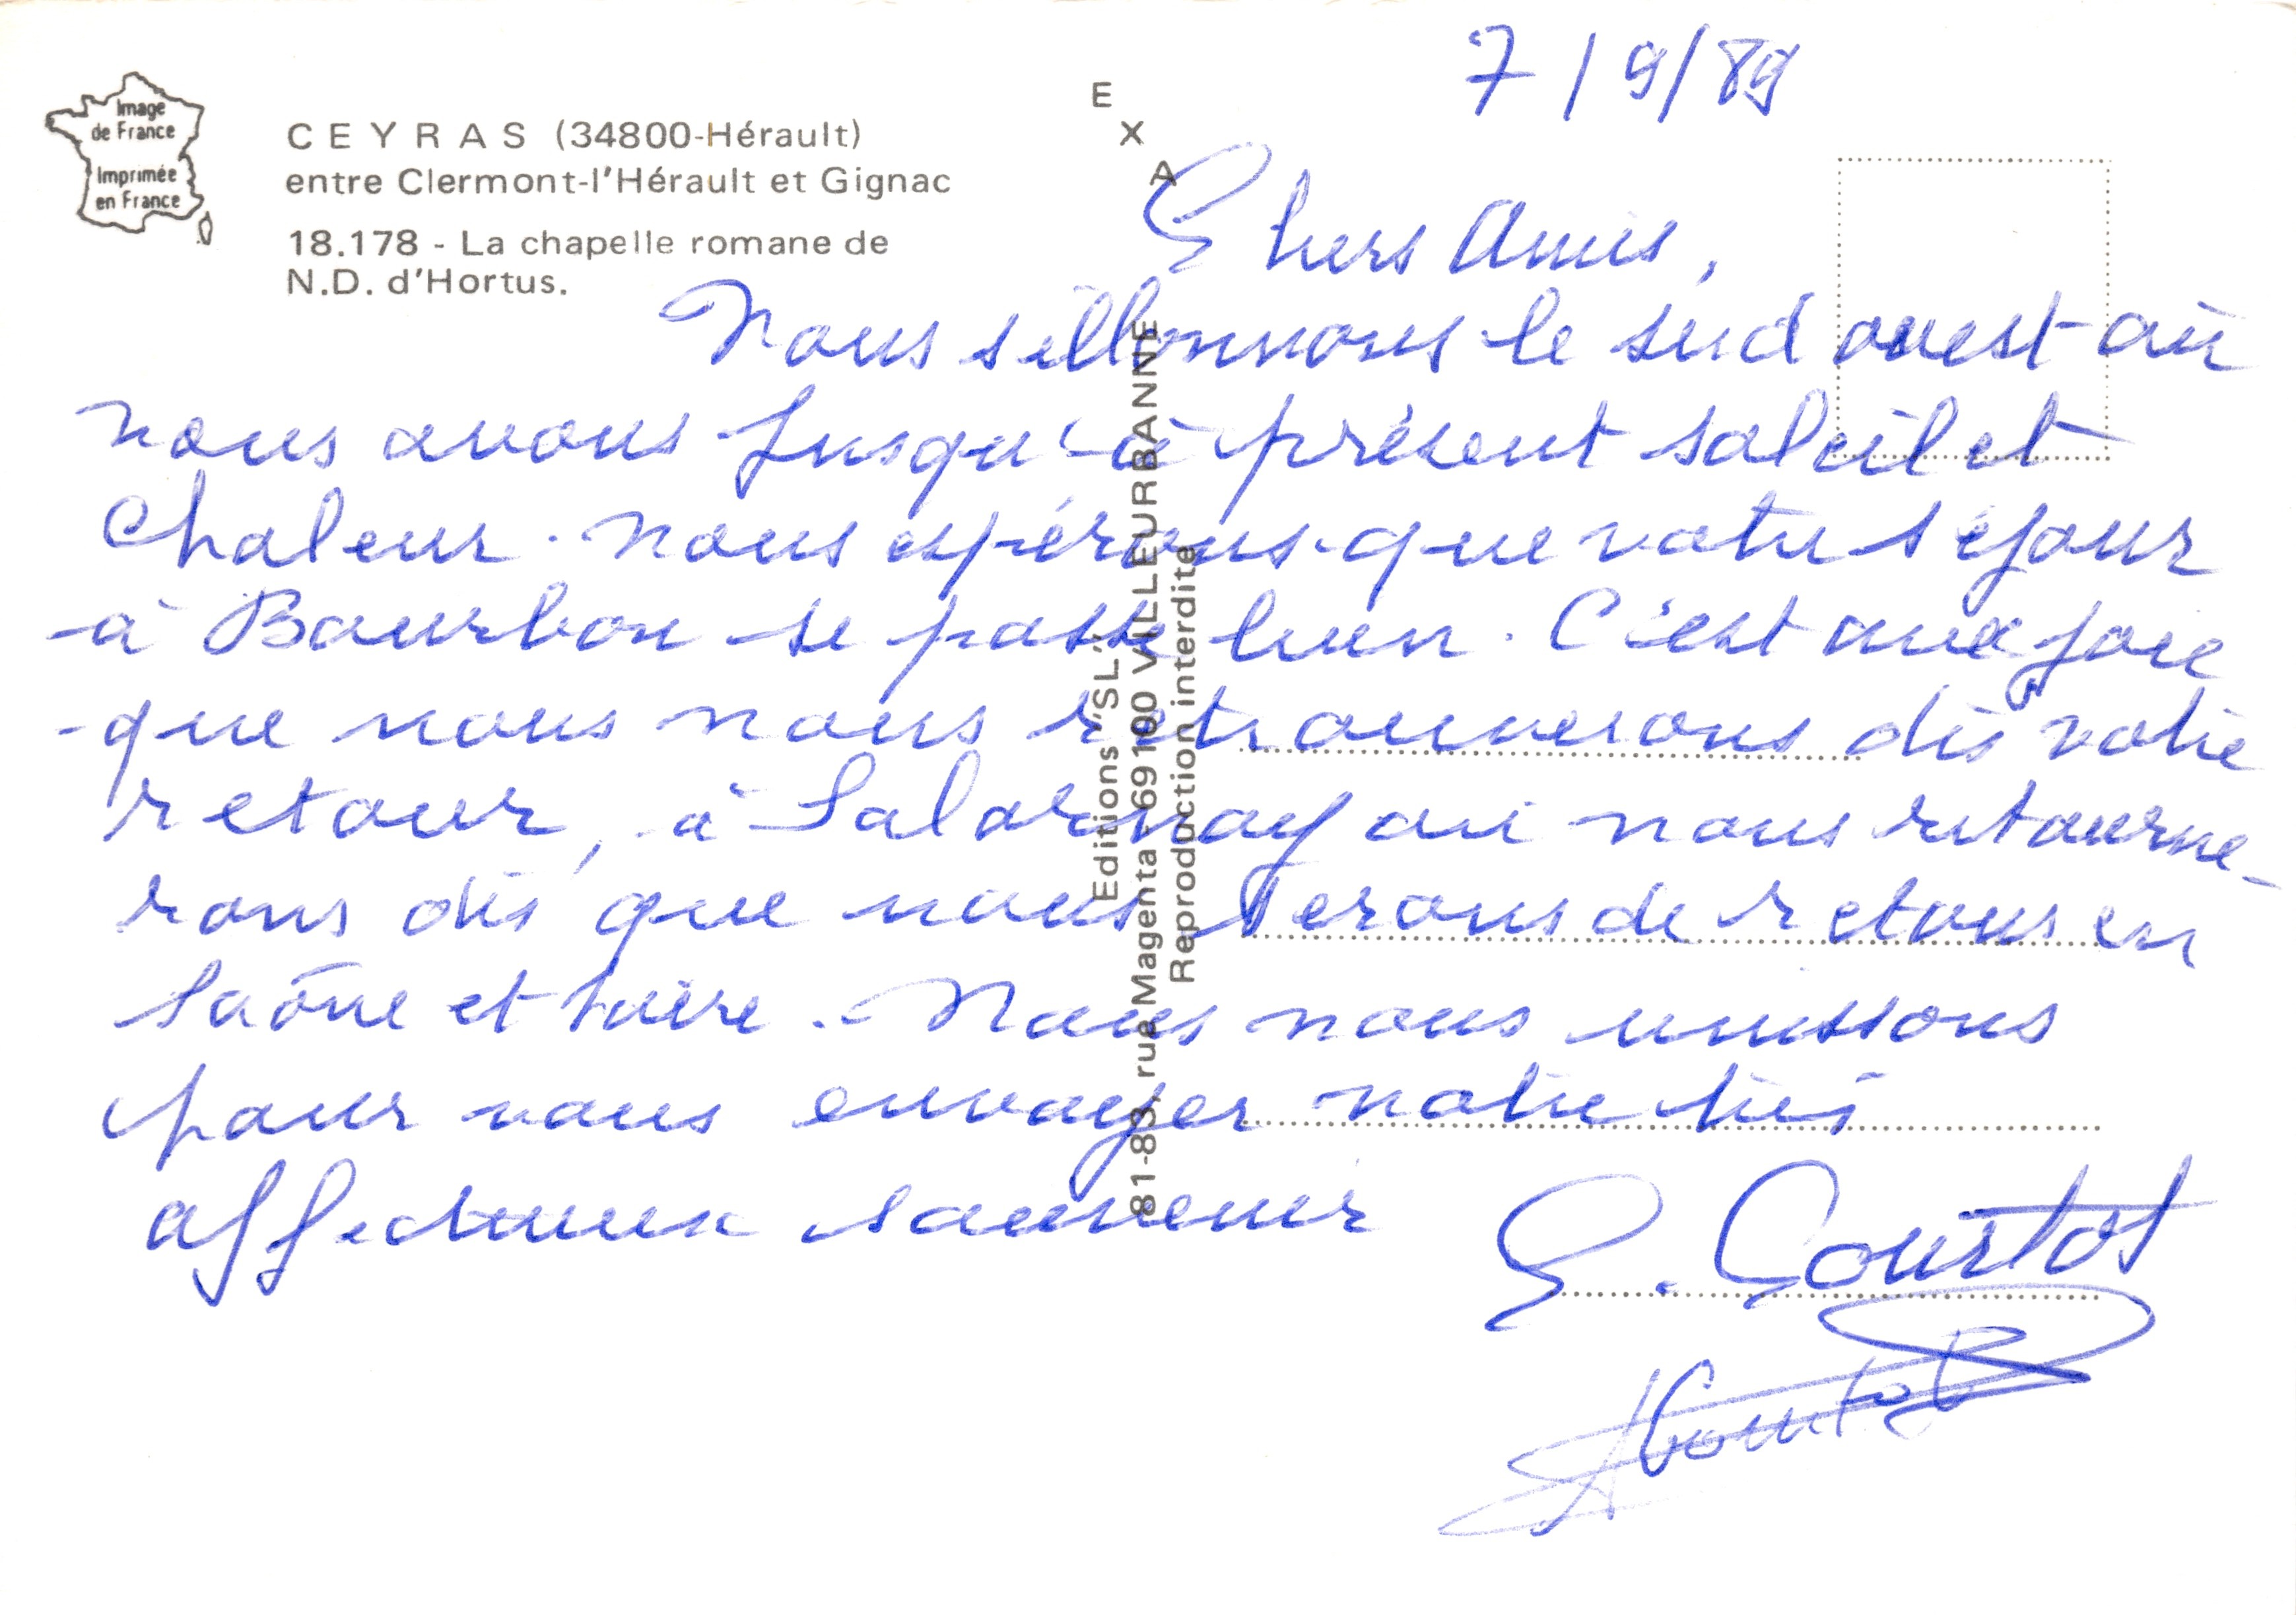 Image
de France
Imprimée
en France
CEYRAS (34800-Hérault)
entre Clermont-l'Hérault et Gignac
18.178 - La chapelle romane de
N.D. d'Hortus.
E
X
A
Editions "SL"
81-83, rue Magenta 69100 VILLEURBANNE
Reproduction interdite
7/9/89
Chers Amis,
Nous sillonnons le sud ouest où
nous avons jusqu'à présent soleil et
chaleur. Nous espérons que votre séjour
à Bourbon se passe bien. C'est avec joie
que nous nous retrouverons dès votre
retour, à Salornay où nous retourne-
rons dès que nous serons de retour en
Saône et Loire. Nous nous unissons
pour vous envoyer notre très
affectueux souvenir
G. Courtot
Courtot